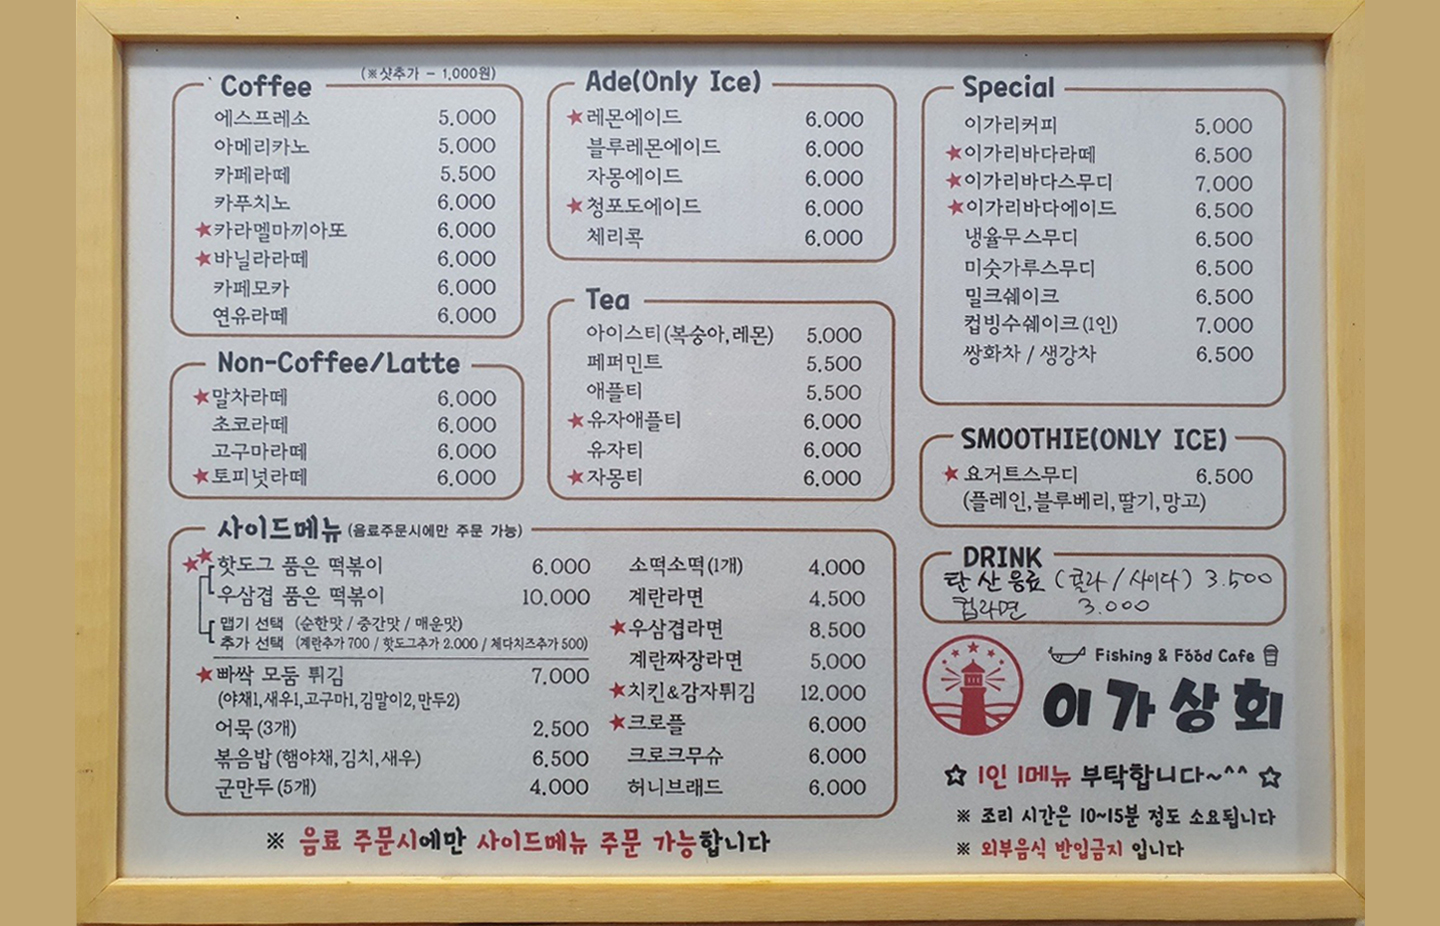 Coffee (※샷추가 - 1,000원)
에스프레소 5.000
아메리카노 5.000
카페라떼 5.500
카푸치노 6.000
★카라멜마끼아또 6.000
★바닐라라떼 6.000
카페모카 6.000
연유라떼 6.000
Non-Coffee/Latte
★말차라떼 6.000
초코라떼 6.000
고구마라떼 6.000
★토피넛라떼 6.000
Ade(Only Ice)
★레몬에이드 6.000
블루레몬에이드 6.000
자몽에이드 6.000
★청포도에이드 6.000
체리콕 6.000
Tea
아이스티(복숭아,레몬) 5.000
페퍼민트 5.500
애플티 5.500
★유자애플티 6.000
유자티 6.000
★자몽티 6.000
Special
이가리커피 5.000
★이가리바다라떼 6.500
★이가리바다스무디 7.000
★이가리바다에이드 6.500
냉율무스무디 6.500
미숫가루스무디 6.500
밀크쉐이크 6.500
컵빙수쉐이크(1인) 7.000
쌍화차 / 생강차 6.500
SMOOTHIE(ONLY ICE)
★요거트스무디 6.500
(플레인,블루베리,딸기,망고)
DRINK
탄산음료 (콜라/사이다) 3.500
컵라면 3.000
사이드메뉴 (음료주문시에만 주문 가능)
★★핫도그 품은 떡볶이 6.000
우삼겹 품은 떡볶이 10.000
맵기 선택 (순한맛 / 중간맛 / 매운맛)
추가 선택 (계란추가 700 / 핫도그추가 2.000 / 체다치즈추가 500)
★빠싹 모둠 튀김 7.000
(야채1,새우1,고구마1,김말이2,만두2)
어묵(3개) 2.500
볶음밥(햄야채,김치,새우) 6.500
군만두(5개) 4.000
소떡소떡(1개) 4.000
계란라면 4.500
★우삼겹라면 8.500
계란짜장라면 5.000
★치킨&감자튀김 12.000
★크로플 6.000
크로크무슈 6.000
허니브래드 6.000
※ 음료 주문시에만 사이드메뉴 주문 가능합니다
Fishing & Food Cafe
이가상회
☆ 1인 1메뉴 부탁합니다~^^ ☆
※ 조리 시간은 10~15분 정도 소요됩니다
※ 외부음식 반입금지 입니다